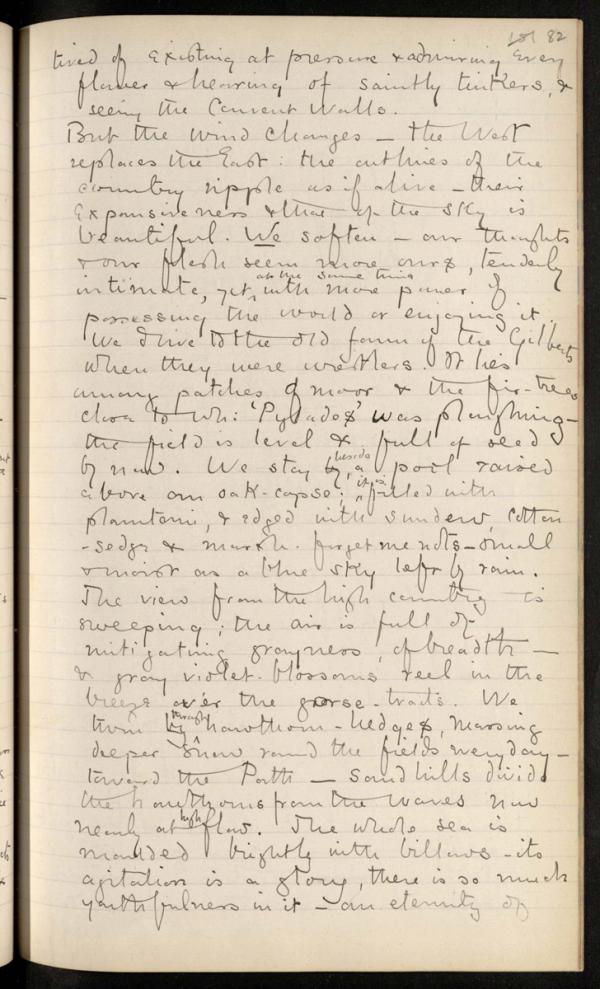 101 82
tired of existing at pressure & admiring every
flower & hearing of saintly tinkers, &
seeing the Convent Walls.
But the wind changes – the West
replaces the East: the outlines of the
country ripple as if alive – their
expansiveness & that of the sky is
beautiful. We soften – our thoughts
& our flesh seem more ours, tenderly
at the same time
intimate, yet with more power of
possessing the world or enjoying it.
We drive to the old farm of the Gilberts
when they were wrestlers. It lies
among patches of moor & the fir-trees
close to wh: 'Pylades' was ploughing –
the field is level & full of seed
by now. We stay by beside a pool raised
above an oak-copse; it is filled with
plantain, & edged with sundew, cotton
-sedge & marsh-forget me nots – small
& moist as a blue sky left by rain.
The view from the high country is
sweeping; the air is full of
mitigating grayness, of breadth –
& gray violet-blossoms reel in the
breeze over the gorse-tracts. We
turn by through hawthorn-hedges, massing
deeper snow round the fields every day –
toward the Path – Sand hills divide
the hawthorns from the waves now
nearly at high flow. The whole sea is
moulded brightly with billows – its
agitation is a glory, there is so much
youthfulness in it – an eternity of